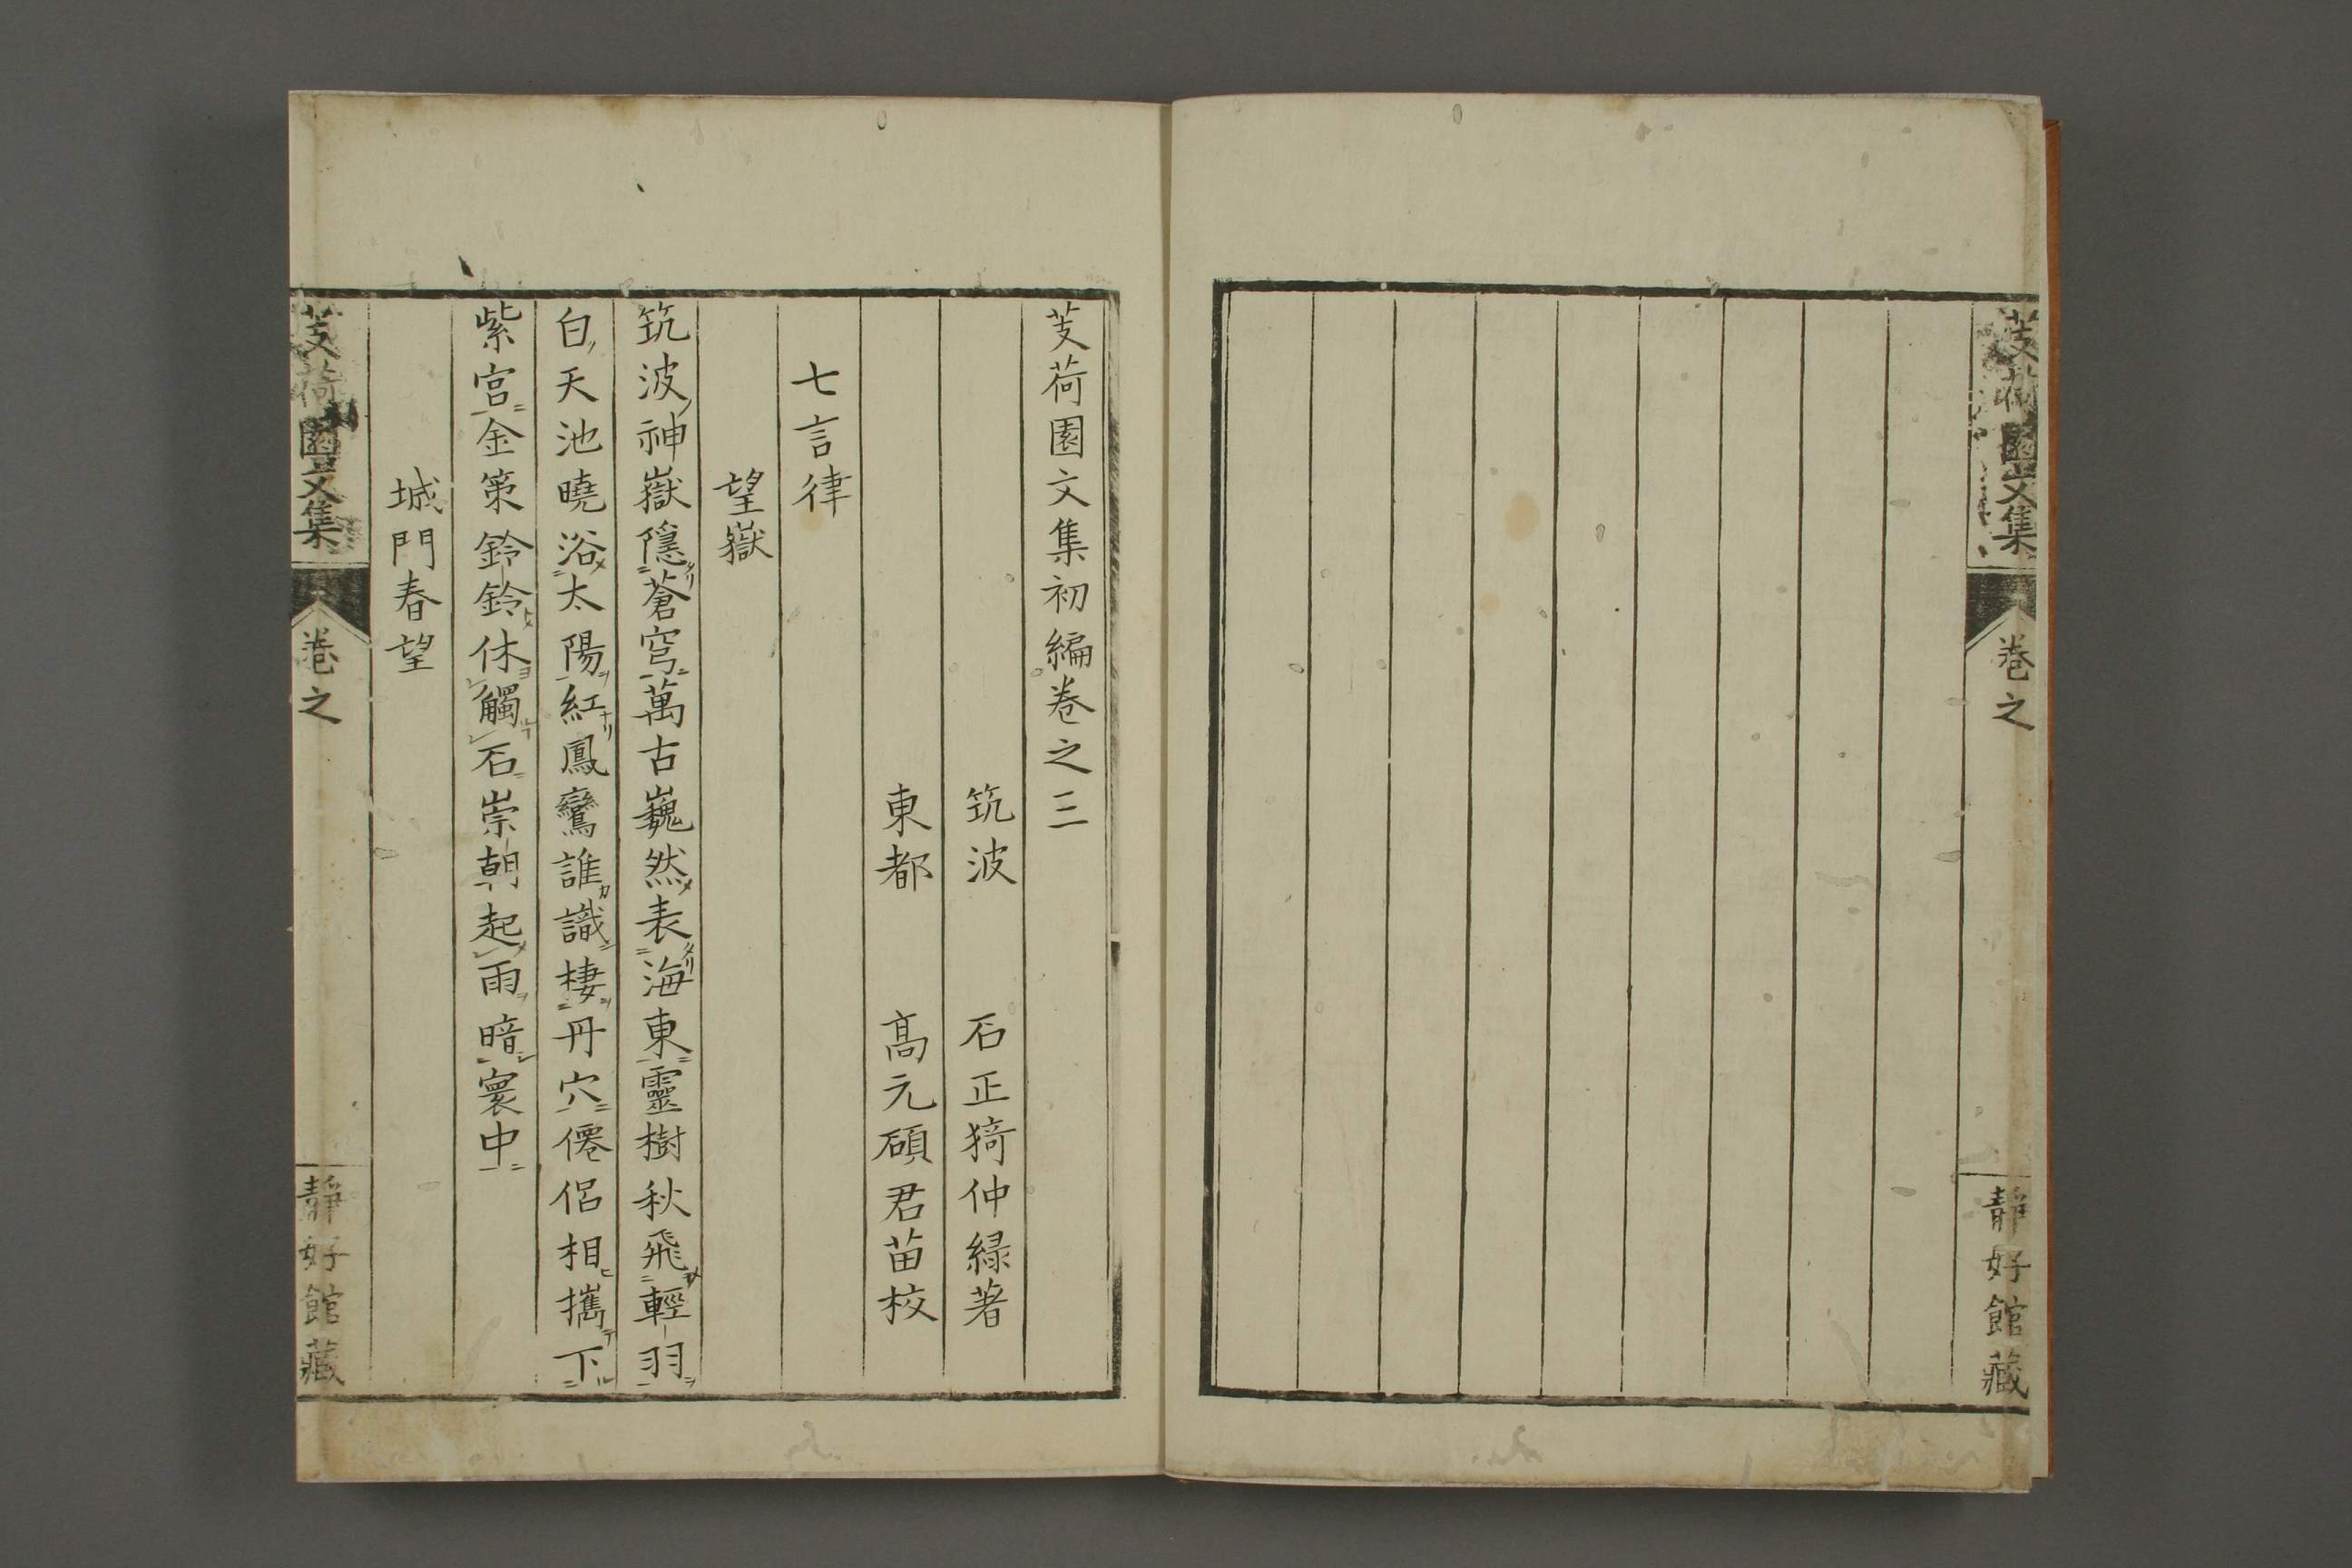 芰荷園文集
卷之
靜好館藏
芰荷園文集初編卷之三
筑波　石正猗仲緑著
東都　髙元碩君苗校
七言律
望嶽
筑波神嶽隱蒼穹萬古巍然表海東靈樹秋飛輕羽
白天池曉浴太陽紅鳳鸞誰識棲丹穴僊侶相攜下
紫宮金策鈴鈴休觸石崇朝起雨暗寰中
城門春望
芰荷園文集
卷之
靜好館藏